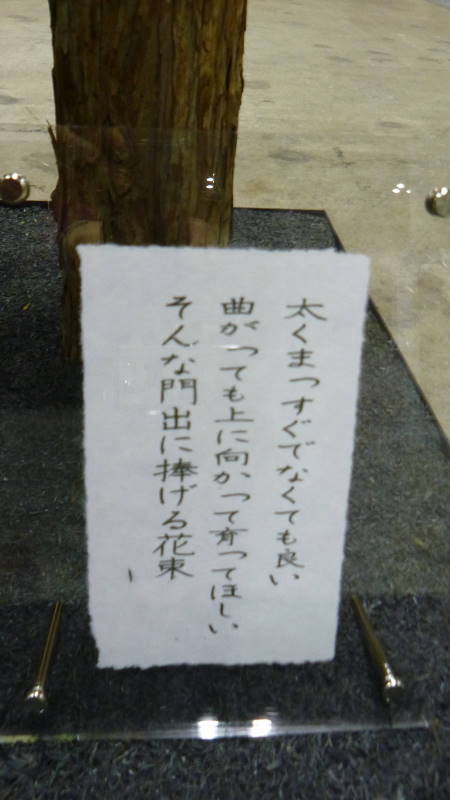 太くまっすぐでなくても良い
曲がっても上に向かって育ってほしい
そんな門出に捧げる花束